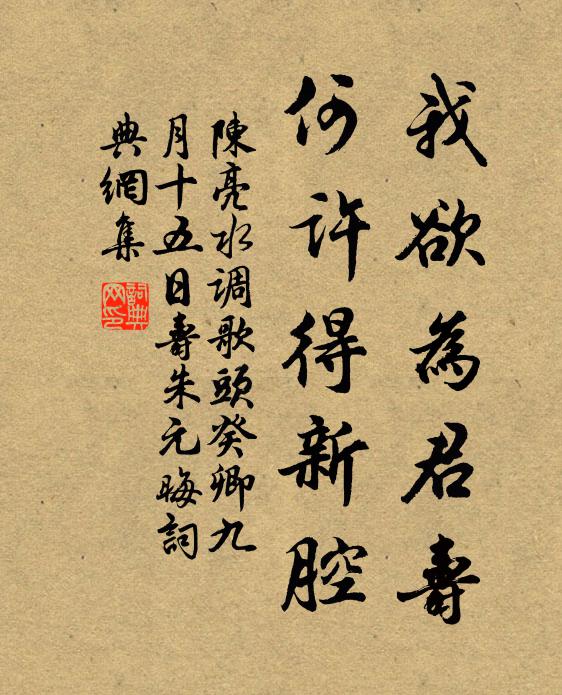 我欲為君壽
何許得新腔
陳亮水調歌頭癸卿九
月十五日壽朱元晦詞
典網集
詞典
网印